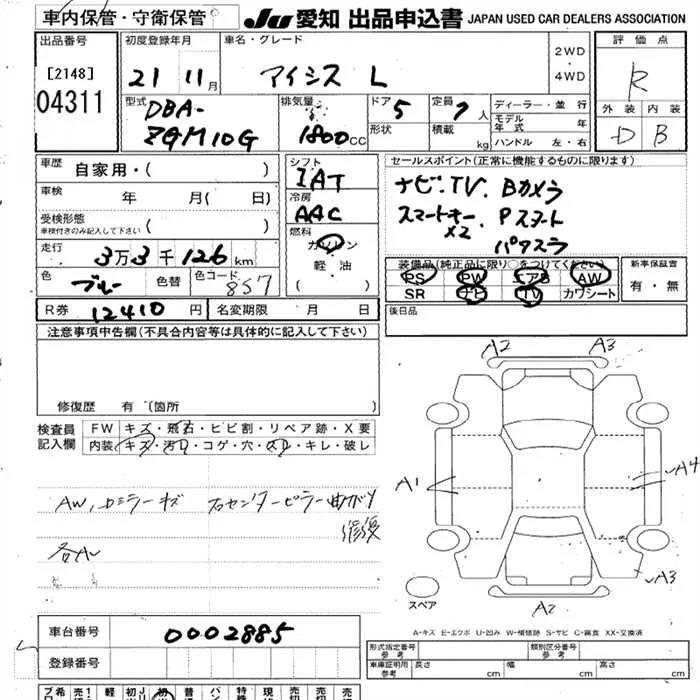 車内保管・守衛保管
JU 愛知 出品申込書 JAPAN USED CAR DEALERS ASSOCIATION
出品番号
[2148]
04311
初度登録年月
21 11月
車名・グレード
アイシス L
2WD
・
4WD
評価点
R
外装 内装
D B
型式
DBA-
ZGM10G
排気量
1800cc
ドア 5
形状
定員 7人
積載 kg
ディーラー・並行
モデル年式 年
ハンドル 左・右
車歴 自家用・( )
車検 年 月( 日)
受検形態
車検付きのみ記入して下さい ( )
走行 3万3千126km
色 ブルー 色替 色コード 857
シフト
IAT
冷房
AAC
燃料
ガソリン
軽油
( ・ )
セールスポイント(正常に機能するものに限ります)
ナビ.TV. Bカメラ
スマートキー x2 Pスタート
パワスラ
装備品(純正品に限り○をつけてください)
PS PW エアB AW
SR ナビ TV カワシート
新車保証書
有・無
R券 12410円 名変期限 月 日
後日品
注意事項申告欄(不具合内容等は具体的に記入して下さい)
修復歴 有(箇所 )
検査員
記入欄
FW キズ・飛石・ヒビ割・リペア跡・X要
内装 キズ・汚れ・コゲ・穴・スレ・キレ・破レ
AW, ドミラーキズ 右センターピラー曲がり
修復
各A
A2 A3
A1
A4
A3
A2
スペア
A-キズ E-エクボ U-凹み W-補修跡 S-サビ C-腐食 XX-交換済
車台番号 0002885
登録番号
形式指定番号 参考 類別区分番号 参考
車庫証明用 参考 長さ cm 幅 cm 高さ cm